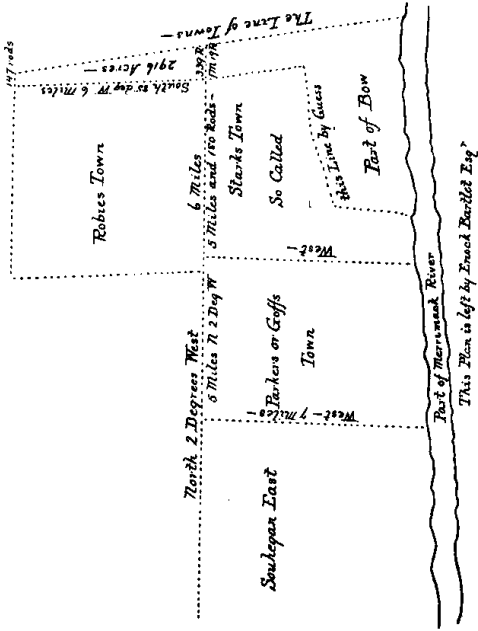 The Line of Towns —
147 rods
2916 Acres —
339 R
1 M 19 R
South 85 deg W. 6 Miles
Robies Town
6 Miles
5 Miles and 180 Rods —
Starks Town
So Called
this Line by Guess
Part of Bow
West —
North 2 Degrees West
5 Miles N 2 Deg W
Parkers or Goffs
Town
West — 7 Miles —
Souhegan East
Part of Merrimack River
This Plan is left by Enock Bartlet Esqr